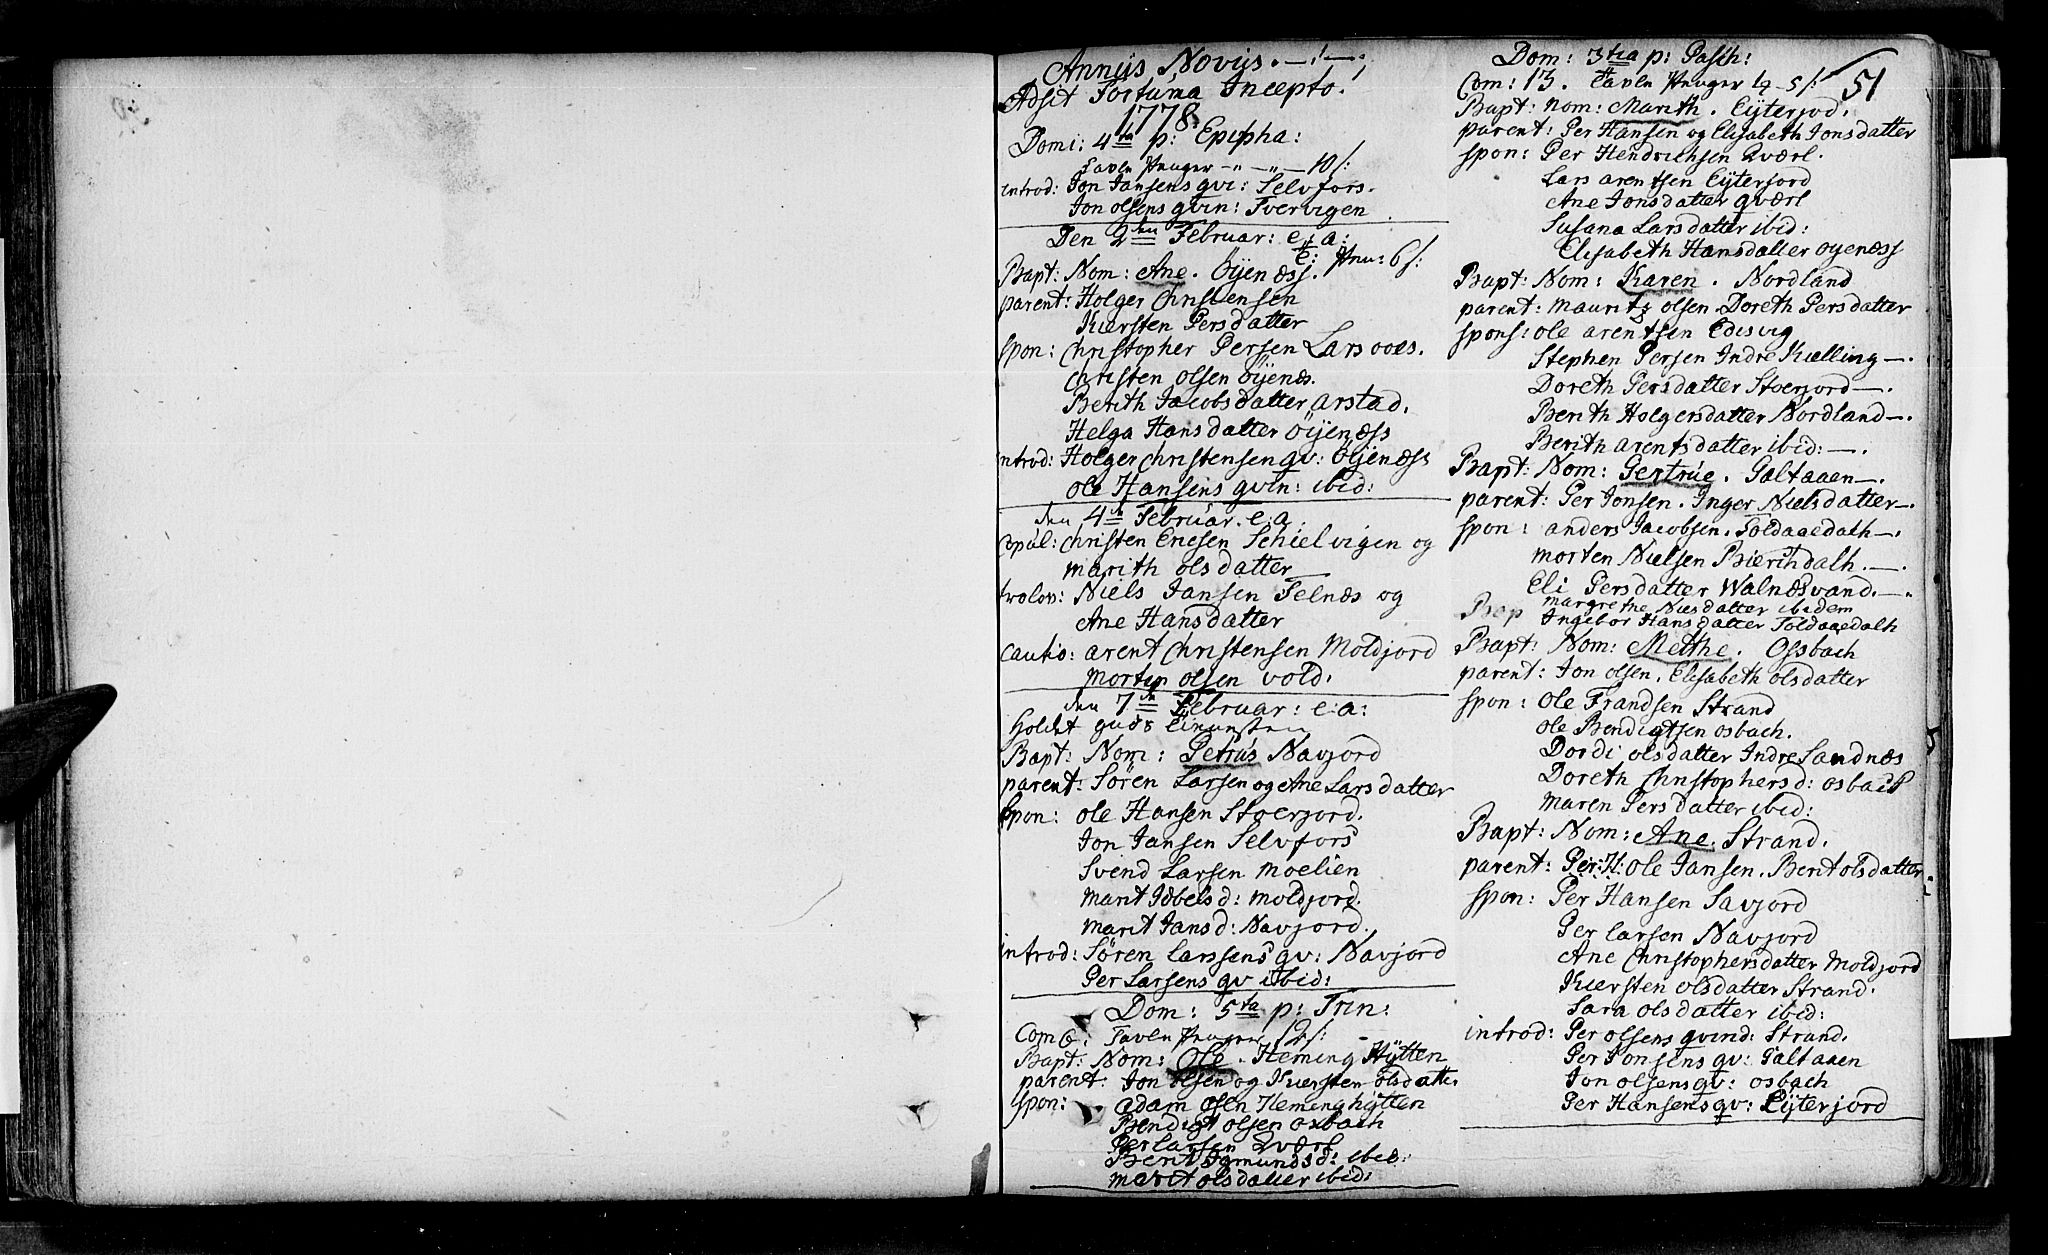 Annus Novus. —
Adsit Fortuna Incepto!
1778
Domi: 4ta p: Epipha:
Tavle Penger — 10 s:
introd: Jon Jansens qvi: Selvfors.
Jon olsens qvin: Tvervigen
Den 2den Februar: e: a:
T: Pen: 6 s:
Bapt: Nom: Ane. Öÿenæss.
parent: Holger Christensen
Kiersten Persdatter
spon: Christopher Persen Larsoes.
Christen olsen öÿenæs.
Berith Jacobsdatter arstad.
Helga Hansdatter öÿenæss
introd: Holger Christensen qv: öÿenæss
ole Hansens qvin: ibid:
den 4de Februar. e: a:
Copul: Christen Enesen Schielvigen og
marith olsdatter
trolov: Niels Jansen Felnæs og
Ane Hansdatter
Cautio: arent Christensen Moldjord
morten olsen vold.
den 7de Februar: e: a:
Holdt guds
Bapt: Nom: Petrus Navjord
parent: Sören Larsen og Ane Larsdatter
Spon: ole Hansen Stoerjord.
Jon Jansen Selvfors
Svend Larsen moelien
marit Jdbelsd: moldjord.
marit Jansd: Navjord.
introd: Sören Larssens qv: Navjord
Per Larsens qv ibid:
Dom: 5ta p: Trin:
Com 6: Tavle Penger 12 s:
Bapt: Nom: Ole. Heming Hÿtten
parent: Jon olsen og Kiersten olsdatter
spon: Adam olsen Heminghÿtten
Bendigt olsen oxbach
Per Larsen Qværl
Berit Jgmundsd: ibid:
marit olsdatter ibid:
51
Dom: 3tia p: Pasch:
Com: 13. Tavle Penger 4 5 s:
Bapt: nom: Marith. Eÿterjod.
parent: Per Hansen og Elisabeth Jonsdatter
spon: Per Hendrichsen Qværl.
Lars arentsen Eÿterjord
Ane Jonsdatter qværl
Susana Larsdatter ibid:
Elisabeth Hansdatter öÿenæss
Bapt: Nom: Karen. Nordland
parent: mauritz olsen. Doreth Persdatter
spons: ole arentsen Edisvig
Stephen Persen Indre Kielling —.
Doreth Persdatter Stoerjord —.
Berith Holgersdatter Nordland —.
Berith arentsdatter ibid: —.
Bapt: Nom: Gertrue. Saltaaen —.
parent: Per Jonsen. Inger Nielsdatter —.
spon: anders Jacobsen. Toldaaedalh —.
morten Nielsen Bierthdalh. —.
Eli Persdatter Walnæsvand. —.
margrethe Nielsdatter ibidem
Bap Ingebor Hansdatter Toldaaedalh
Bapt: Nom: Methe. Osbach
parent: Jon olsen. Elisabeth olsdatter
spon: Ole Frandsen Strand
ole Bendigtsen osbach.
Dordi olsdatter Indre Sandnæs
Doreth Christophersd: osbach
maren Persdatter ibid:
Bapt: Nom: Ane. Strand.
parent: Per: H: Ole Jansen. Berit olsdatter
spon: Per Hansen Savjord
Per Larsen Navjord
Ane Christophersdatter Moldjord
Kiersten olsdatter Strand.
Sara olsdatter ibid:
introd: Per olsens qvind: Strand.
Per Jonsens qv: Saltaaen
Jon olsens qv: osbach
Per Hansens qv: Eÿterjord